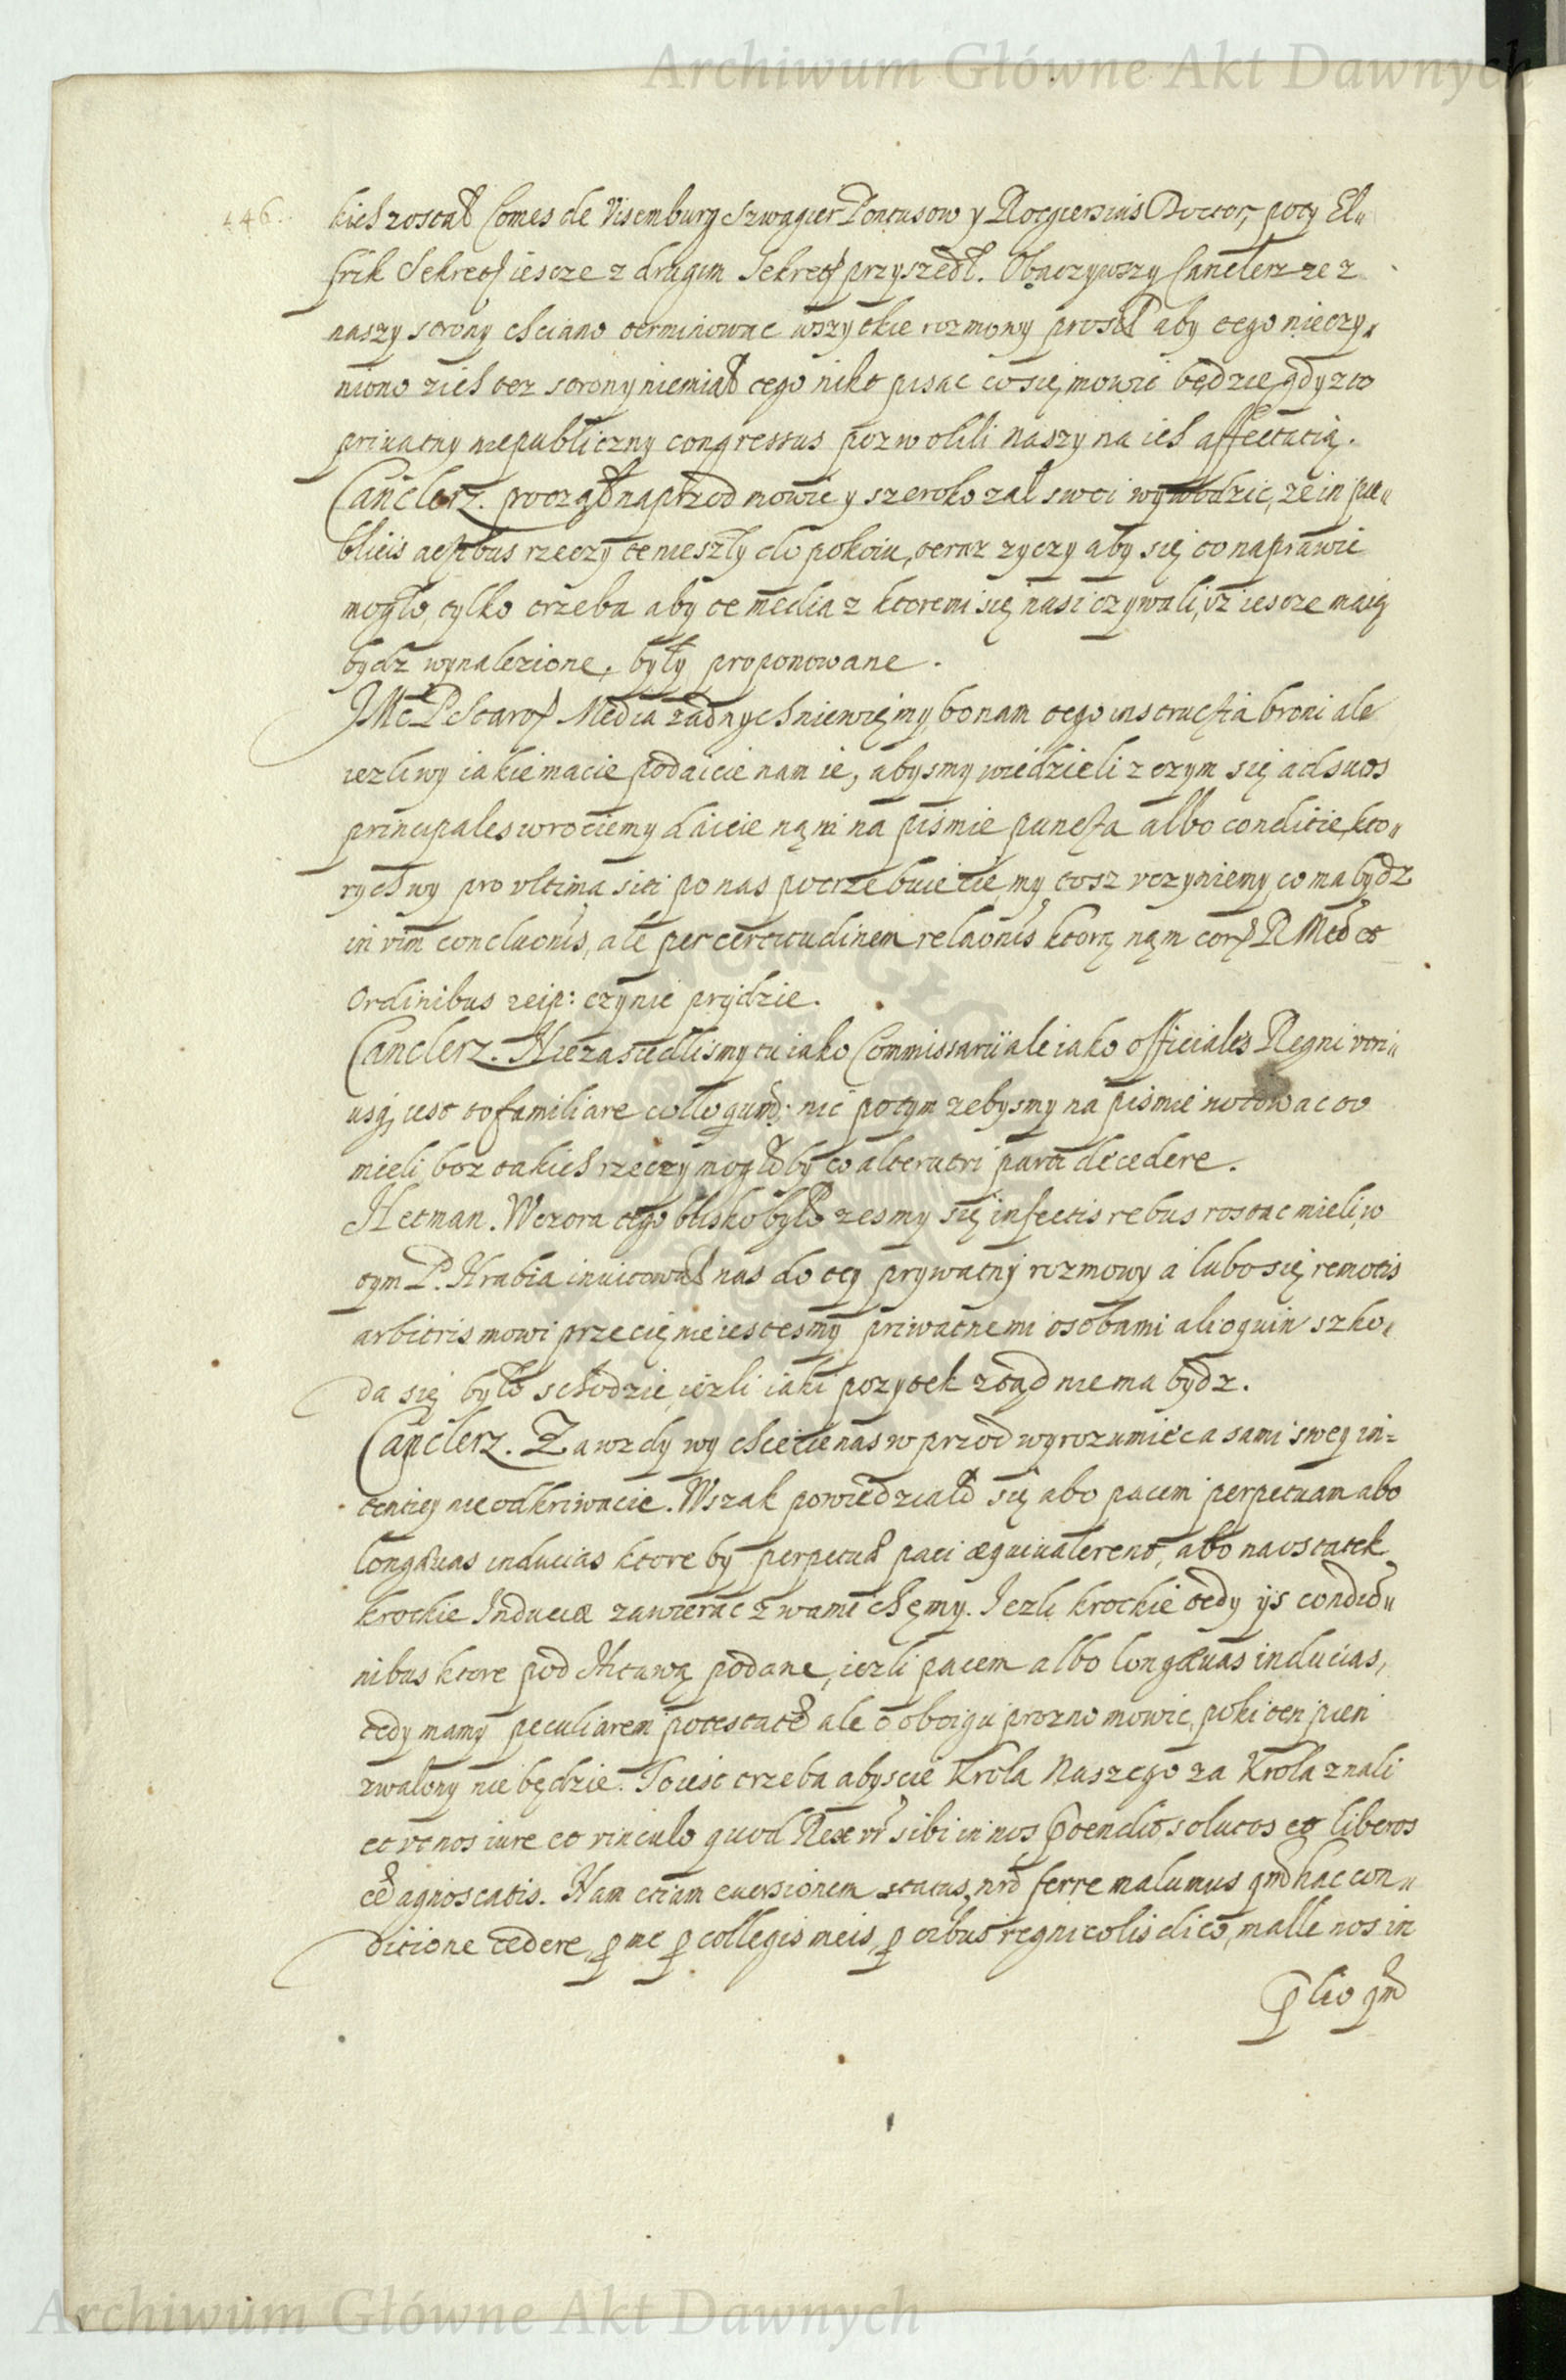 Archiwum Główne Akt Dawnych
146.
kich został Comes de Visemburg Szwagier Pontusow y Rotgiersius Doctor, poty El„
frik Sekret iescze z drugim Sekret przyszedł. Obaczywszy Canclerz ze z
naszy strony chciano terminowac wszytkie rozmowy prosił aby tego nieczy„
niono z ich tez strony niemiał tego nikt pisac co się mowic będzie, gdyz to
priuatny niepubliczny congressus pozwolili naszy na ich affectatią.
Canclerz. począł naprzod mowic y szeroko zal swoi wywodzic, ze in pu„
blicis actibus rzeczy te nieszły do pokoiu, teraz zyczy aby się to naprawic
mogło, tylko trzeba aby te media z ktoremi się nasi czywali, vz iescze maią
bydz wynalezione, były proponowane.
JMc P Starost Media zadnych niewięmy, bo nam tego instructia broni ale
iezli wy iakie macie podaicie nam ie, abysmy wiedzieli z czym się ad suos
principales wrociemy daicie nąm na pismie puncta albo conditie, kto„
rych wy pro vltima siti po nas potrzebuiecie, my tosz vczyniemy co ma bydz
in vim conclusionis, ale per certitudinem relaonis ktorą nąm cor R Mcto et
Ordinibus reip: czynic prijdzie.
Canclerz. Nie zasiedlismy tu iako Commissarii ale iako officiales Regni vtri„
usq, iest to familiare colloquium: nic potym zebysmy na pismie notowac to
mieli, bo z takich rzeczy mogłoby co alterutri parti decedere.
Hetman. Wczora tego blisko było zesmy się infectis rebus rostac mieli, w
tym P. Hrabia inuitował nas do tey prywatny rozmowy a lubo się remotis
arbitris mowi przecię nie iestesmy priwatnemi osobami alioquin szko„
da się było schodzic, iezli iaki pozytek ztąd nie ma bydz.
Canclerz. Zawzdy wy chcecie nas w przod wyrozumiec a sami swey in=
tentiey nie odkriwacie. Wszak powiedziało się abo pacem perpetuam abo
longæuas inducias ktore by perpetuæ paci æquiualerent, abo na ostatek
krotkie Induciæ zawierac z wami chęmy. Iezli krotkie tedy ijs conditio„
nibus ktore pod Mitawą podane, iezli pacem albo longæuas inducias,
tedy mamy peculiarem potestatem ale o oboigu prozno mowic, poki ten pien
zwalony nie będzie. To iest trzeba abyscie Krola Naszego za Krola znali
et vt nos iure et vinculo quod Rex vr sibi in nos prætendit, solutos et liberos
ee agnoscatis. Nam etiam euersionem status nri ferre malumus qm hac con„
ditione cedere, p me p collegis meis, p oibus regnicolis dico, malle nos in
prælio qm
Archiwum Główne Akt Dawnych